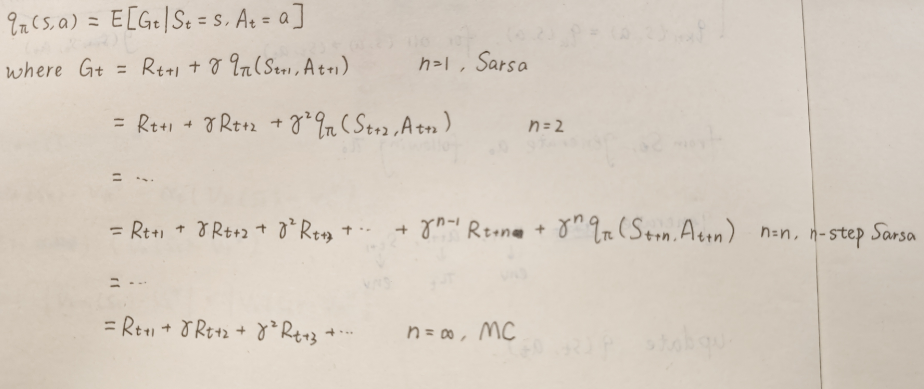 qπ(s,a) = E[Gt|St = s, At = a]
where Gt = Rt+1 + γ qπ(St+1, At+1) n=1, Sarsa
= Rt+1 + γRt+2 + γ²qπ(St+2, At+2) n=2
= ...
= Rt+1 + γRt+2 + γ²Rt+3 + ·· + γⁿ⁻¹ Rt+n + γⁿ qπ(St+n, At+n) n=n, n-step Sarsa
= ...
= Rt+1 + γRt+2 + γ²Rt+3 + ··· n = ∞, MC